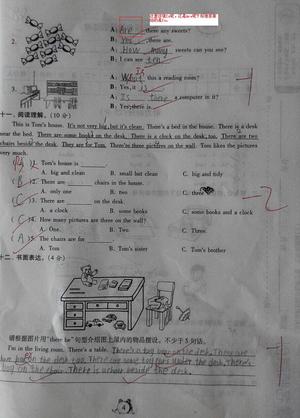 2.
A: Are there any sweets?
B: Yes, there are.
A: How many sweets can you see?
B: I can see ten
3.
A: What this a reading room?
B: Yes, it is
A: Is there a computer in it?
B: Yes, there is
十一、阅读理解。(10 分)
This is Tom's house. It's not very big, but it's clean. There's a bed in the house. There is a desk
near the bed. There are some books on the desk. There is a clock on the desk, too. There are two
chairs beside the desk. They are for Tom. There're three pictures on the wall. Tom likes the pictures
very much.
11. Tom's house is
A. big and clean B. small but clean C. big and tidy
(B) 12. There are chairs in the house.
A. only one B. two C. three
(C) 13. There are on the desk.
A. a clock B. some books C. some books and a clock
(C) 14. How many pictures are there on the wall?
A. One. B. Two. C. Three.
(A) 15. The chairs are for
A. Tom B. Tom's sister C. Tom's brother
十二、书面表达。(4 分)
请根据图片用"there be"句型介绍图上屋内的物品摆设，不少于 5 句话。
I'm in the living room. There's a table. There's a toy on the desk. There are
on the desk too. There under the desk. There's
bag on the chair. There is a chair beside the desk.
4
-1
-2